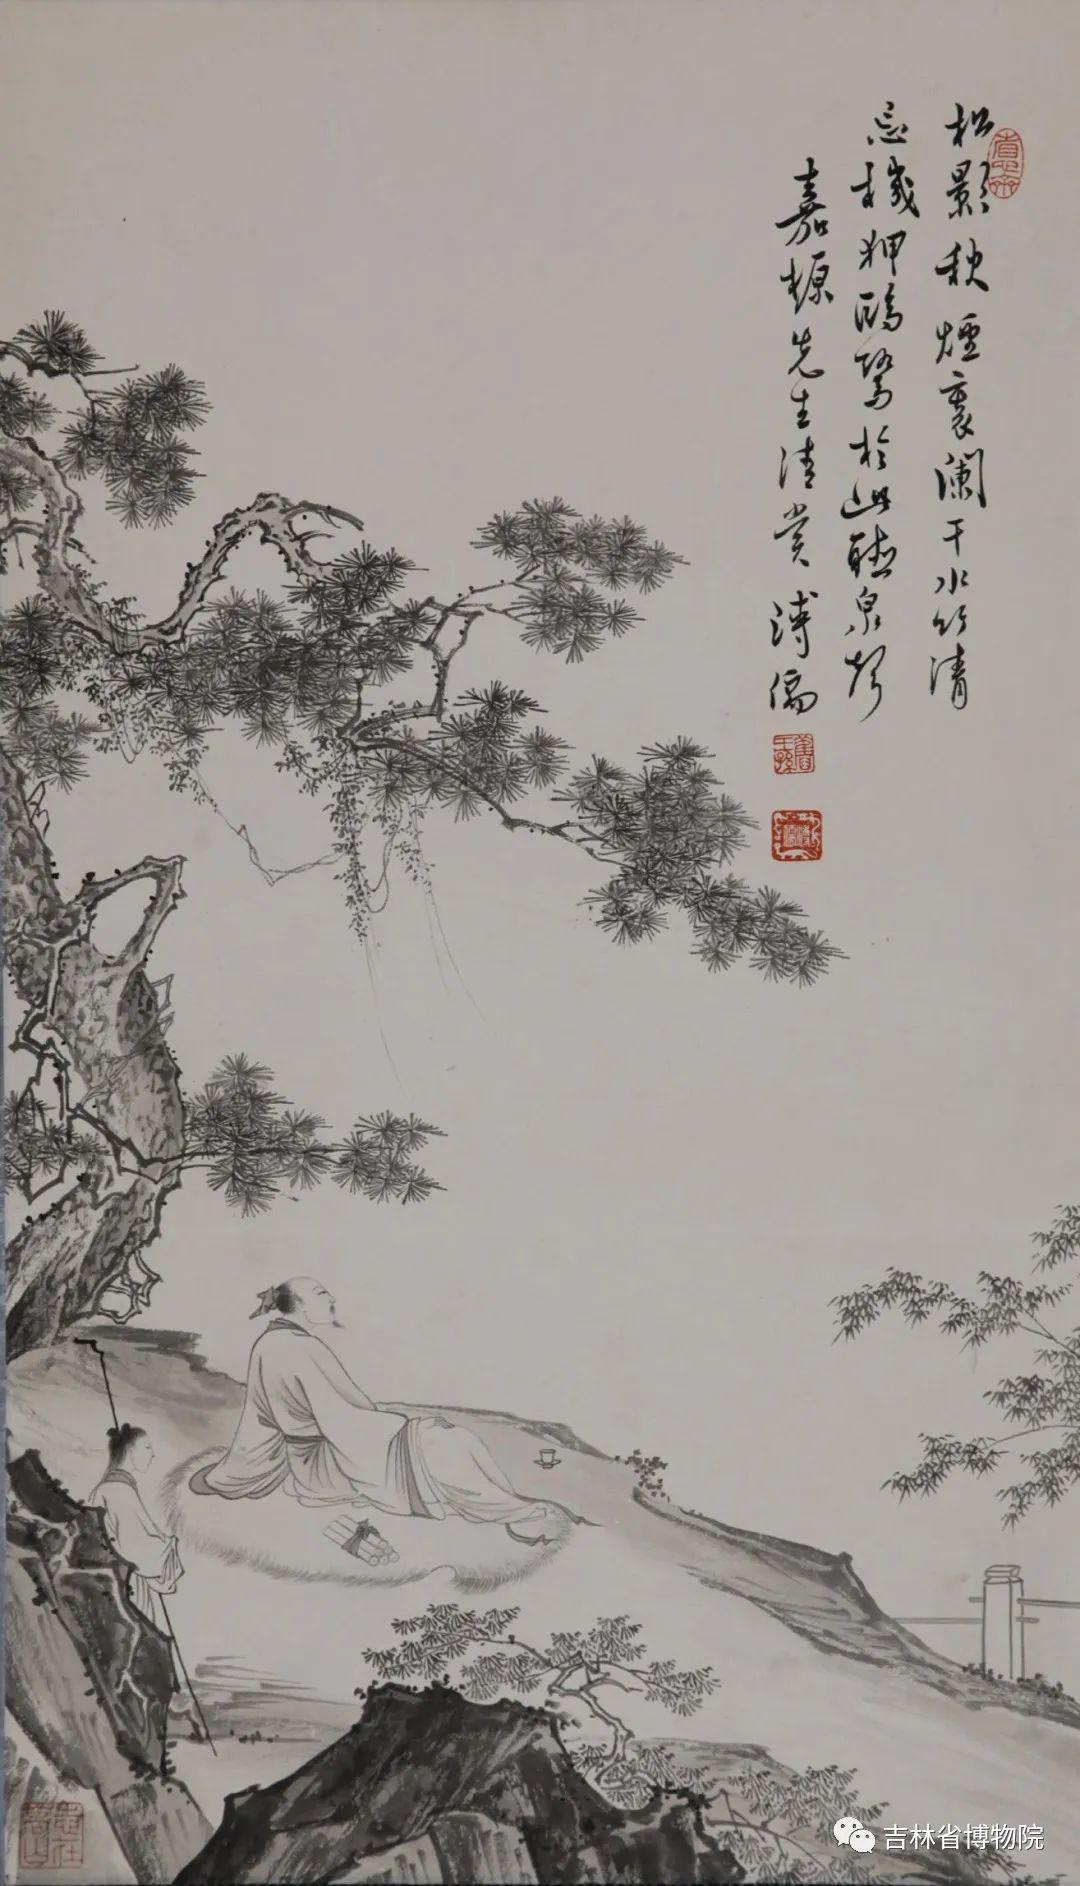 松影秋煙裏闌干水竹清
忘機狎鷗鷺於此聽泉聲
嘉㮣先生清賞 溥儒
舊王孫
吉林省博物院